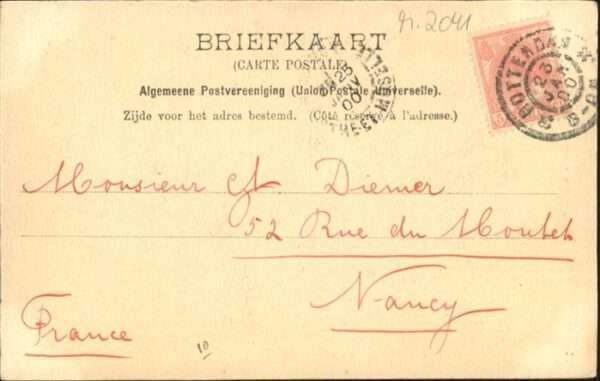 n. 2041
BRIEFKAART
(CARTE POSTALE)
Algemeene Postvereeniging (Union Postale Universelle).
Zijde voor het adres bestemd. (Côté réservé à l'adresse.)
ROTTERDAM
25 JAN 00
25 JANV 00
Monsieur Diemer
52 Rue du Montet
Nancy
France
10